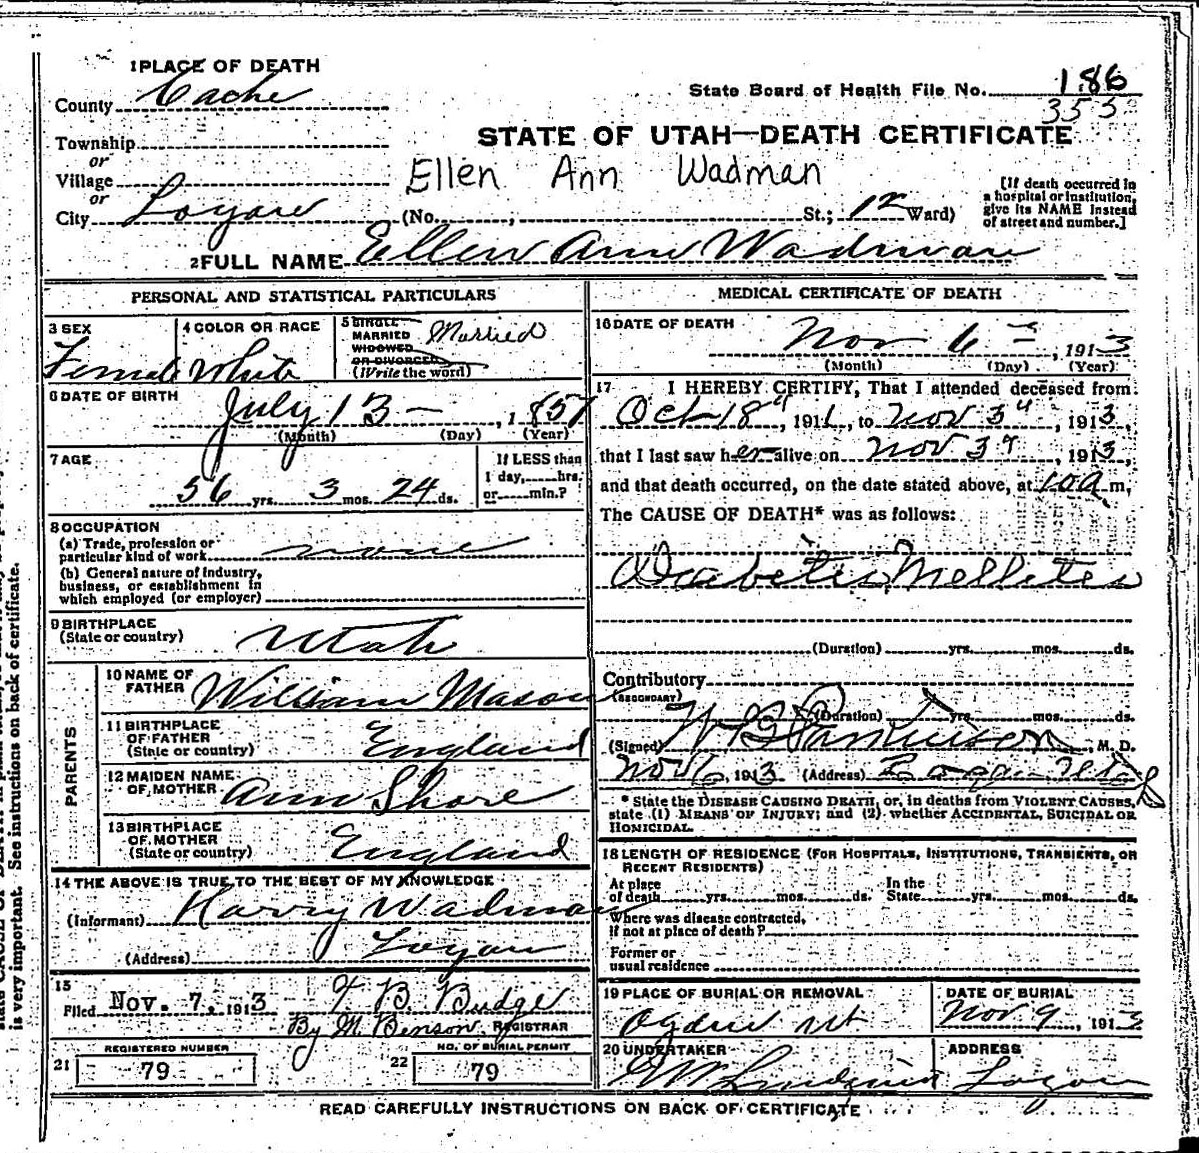 1 PLACE OF DEATH
County Cache
State Board of Health File No. 186
355
Township
or
Village
or
City Logan
STATE OF UTAH—DEATH CERTIFICATE
Ellen Ann Wadman
(No. , St.; 1st Ward)
[If death occurred in
a hospital or institution,
give its NAME instead
of street and number.]
2 FULL NAME Ellen Ann Wadman
PERSONAL AND STATISTICAL PARTICULARS
3 SEX
Female
4 COLOR OR RACE
White
5 SINGLE
MARRIED
WIDOWED
OR DIVORCED
(Write the word)
Married
6 DATE OF BIRTH
July 13 — , 1857
(Month) (Day) (Year)
7 AGE
56 yrs. 3 mos. 24 ds.
If LESS than
1 day, hrs.
or min.?
8 OCCUPATION
(a) Trade, profession or
particular kind of work none
(b) General nature of industry,
business, or establishment in
which employed (or employer)
9 BIRTHPLACE
(State or country) Utah
PARENTS
10 NAME OF
FATHER William Mason
11 BIRTHPLACE
OF FATHER
(State or country) England
12 MAIDEN NAME
OF MOTHER Ann Shore
13 BIRTHPLACE
OF MOTHER
(State or country) England
14 THE ABOVE IS TRUE TO THE BEST OF MY KNOWLEDGE
(Informant) Harry Wadman
(Address) Logan
15
Filed Nov. 7, 1913 T B. Budge
By M. Benson. REGISTRAR
REGISTERED NUMBER
21 79
NO. OF BURIAL PERMIT
22 79
MEDICAL CERTIFICATE OF DEATH
16 DATE OF DEATH
Nov 6 , 1913
(Month) (Day) (Year)
17 I HEREBY CERTIFY, That I attended deceased from
Oct 18", 1911, to Nov 3", 1913,
that I last saw her alive on Nov 3", 1913,
and that death occurred, on the date stated above, at 10 a m.
The CAUSE OF DEATH* was as follows:
Diabetis Mellites
(Duration) yrs. mos. ds.
Contributory
(SECONDARY)
(Duration) yrs. mos. ds.
(Signed) , M. D.
Nov 6, 1913 (Address) Logan Utah
* State the DISEASE CAUSING DEATH, or, in deaths from VIOLENT CAUSES,
state (1) MEANS OF INJURY; and (2) whether ACCIDENTAL, SUICIDAL OR
HOMICIDAL.
18 LENGTH OF RESIDENCE (FOR HOSPITALS, INSTITUTIONS, TRANSIENTS, OR
RECENT RESIDENTS)
At place
of death yrs. mos. ds.
In the
State yrs. mos. ds.
Where was disease contracted,
if not at place of death?
Former or
usual residence
19 PLACE OF BURIAL OR REMOVAL
Ogden Ut
DATE OF BURIAL
Nov 9, 1913
20 UNDERTAKER
Lindquist
ADDRESS
Logan
READ CAREFULLY INSTRUCTIONS ON BACK OF CERTIFICATE
is very important. See instructions on back of certificate.